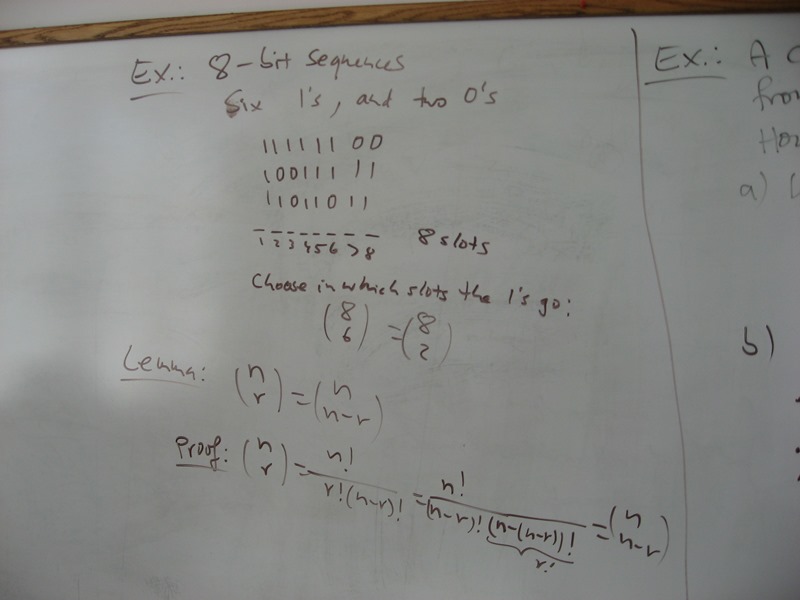 Ex.: 8-bit sequences
Six 1's, and two 0's
111111 00
100111 11
11011011
_ _ _ _ _ _ _ _ 8 slots
1 2 3 4 5 6 7 8
Choose in which slots the 1's go:
(8 6) = (8 2)
Lemma: (n r) = (n n-r)
Proof: (n r) = n! / r!(n-r)! = n! / (n-r)!(n-(n-r))! = (n n-r)
r!
Ex.: A
from
a)
b)